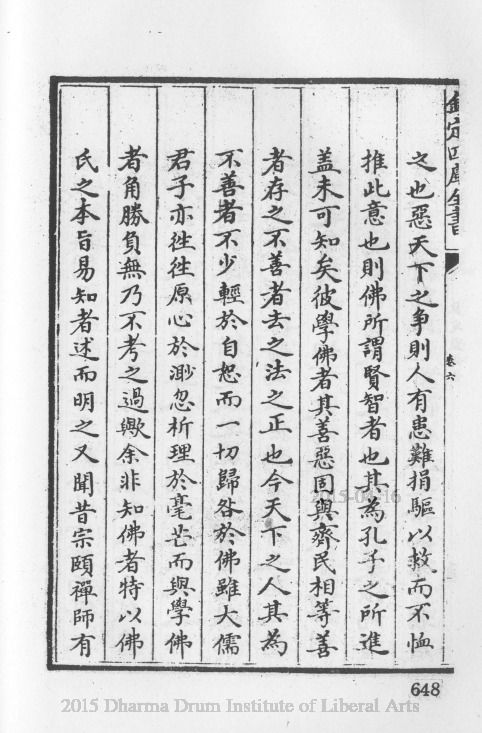 欽定四庫全書
卷六
之也惡天下之爭則人有患難捐軀以救而不恤
推此意也則佛所謂賢智者也其為孔子之所進
蓋未可知矣彼學佛者其善惡固與齊民相等善
者存之不善者去之法之正也今天下之人其為
不善者不少輕於自恕而一切歸咎於佛雖大儒
君子亦徃徃原心於渺忽析理於毫芒而與學佛
者角勝負無乃不考之過歟余非知佛者特以佛
氏之本旨易知者述而明之又聞昔宗頤禪師有
2015-04-16
648
2015 Dharma Drum Institute of Liberal Arts